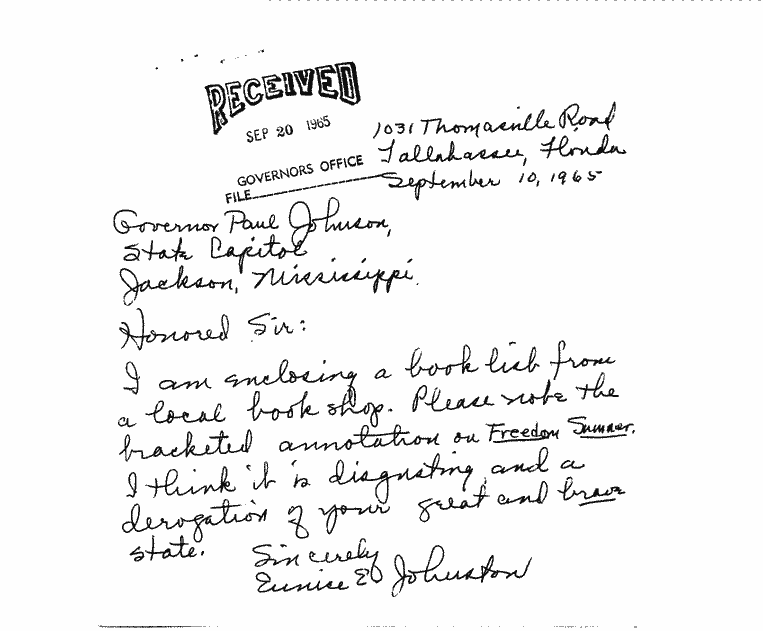 RECEIVED
SEP 20 1965
GOVERNORS OFFICE
FILE
1031 Thomasville Road
Tallahassee, Florida
September 10, 1965
Governor Paul Johnson,
State Capitol
Jackson, Mississippi.
Honored Sir:
I am enclosing a book list from
a local book shop. Please note the
bracketed annotation on Freedom Summer.
I think it is disgusting and a
derogation of your great and brave
state.
Sincerely
Eunice E Johnston